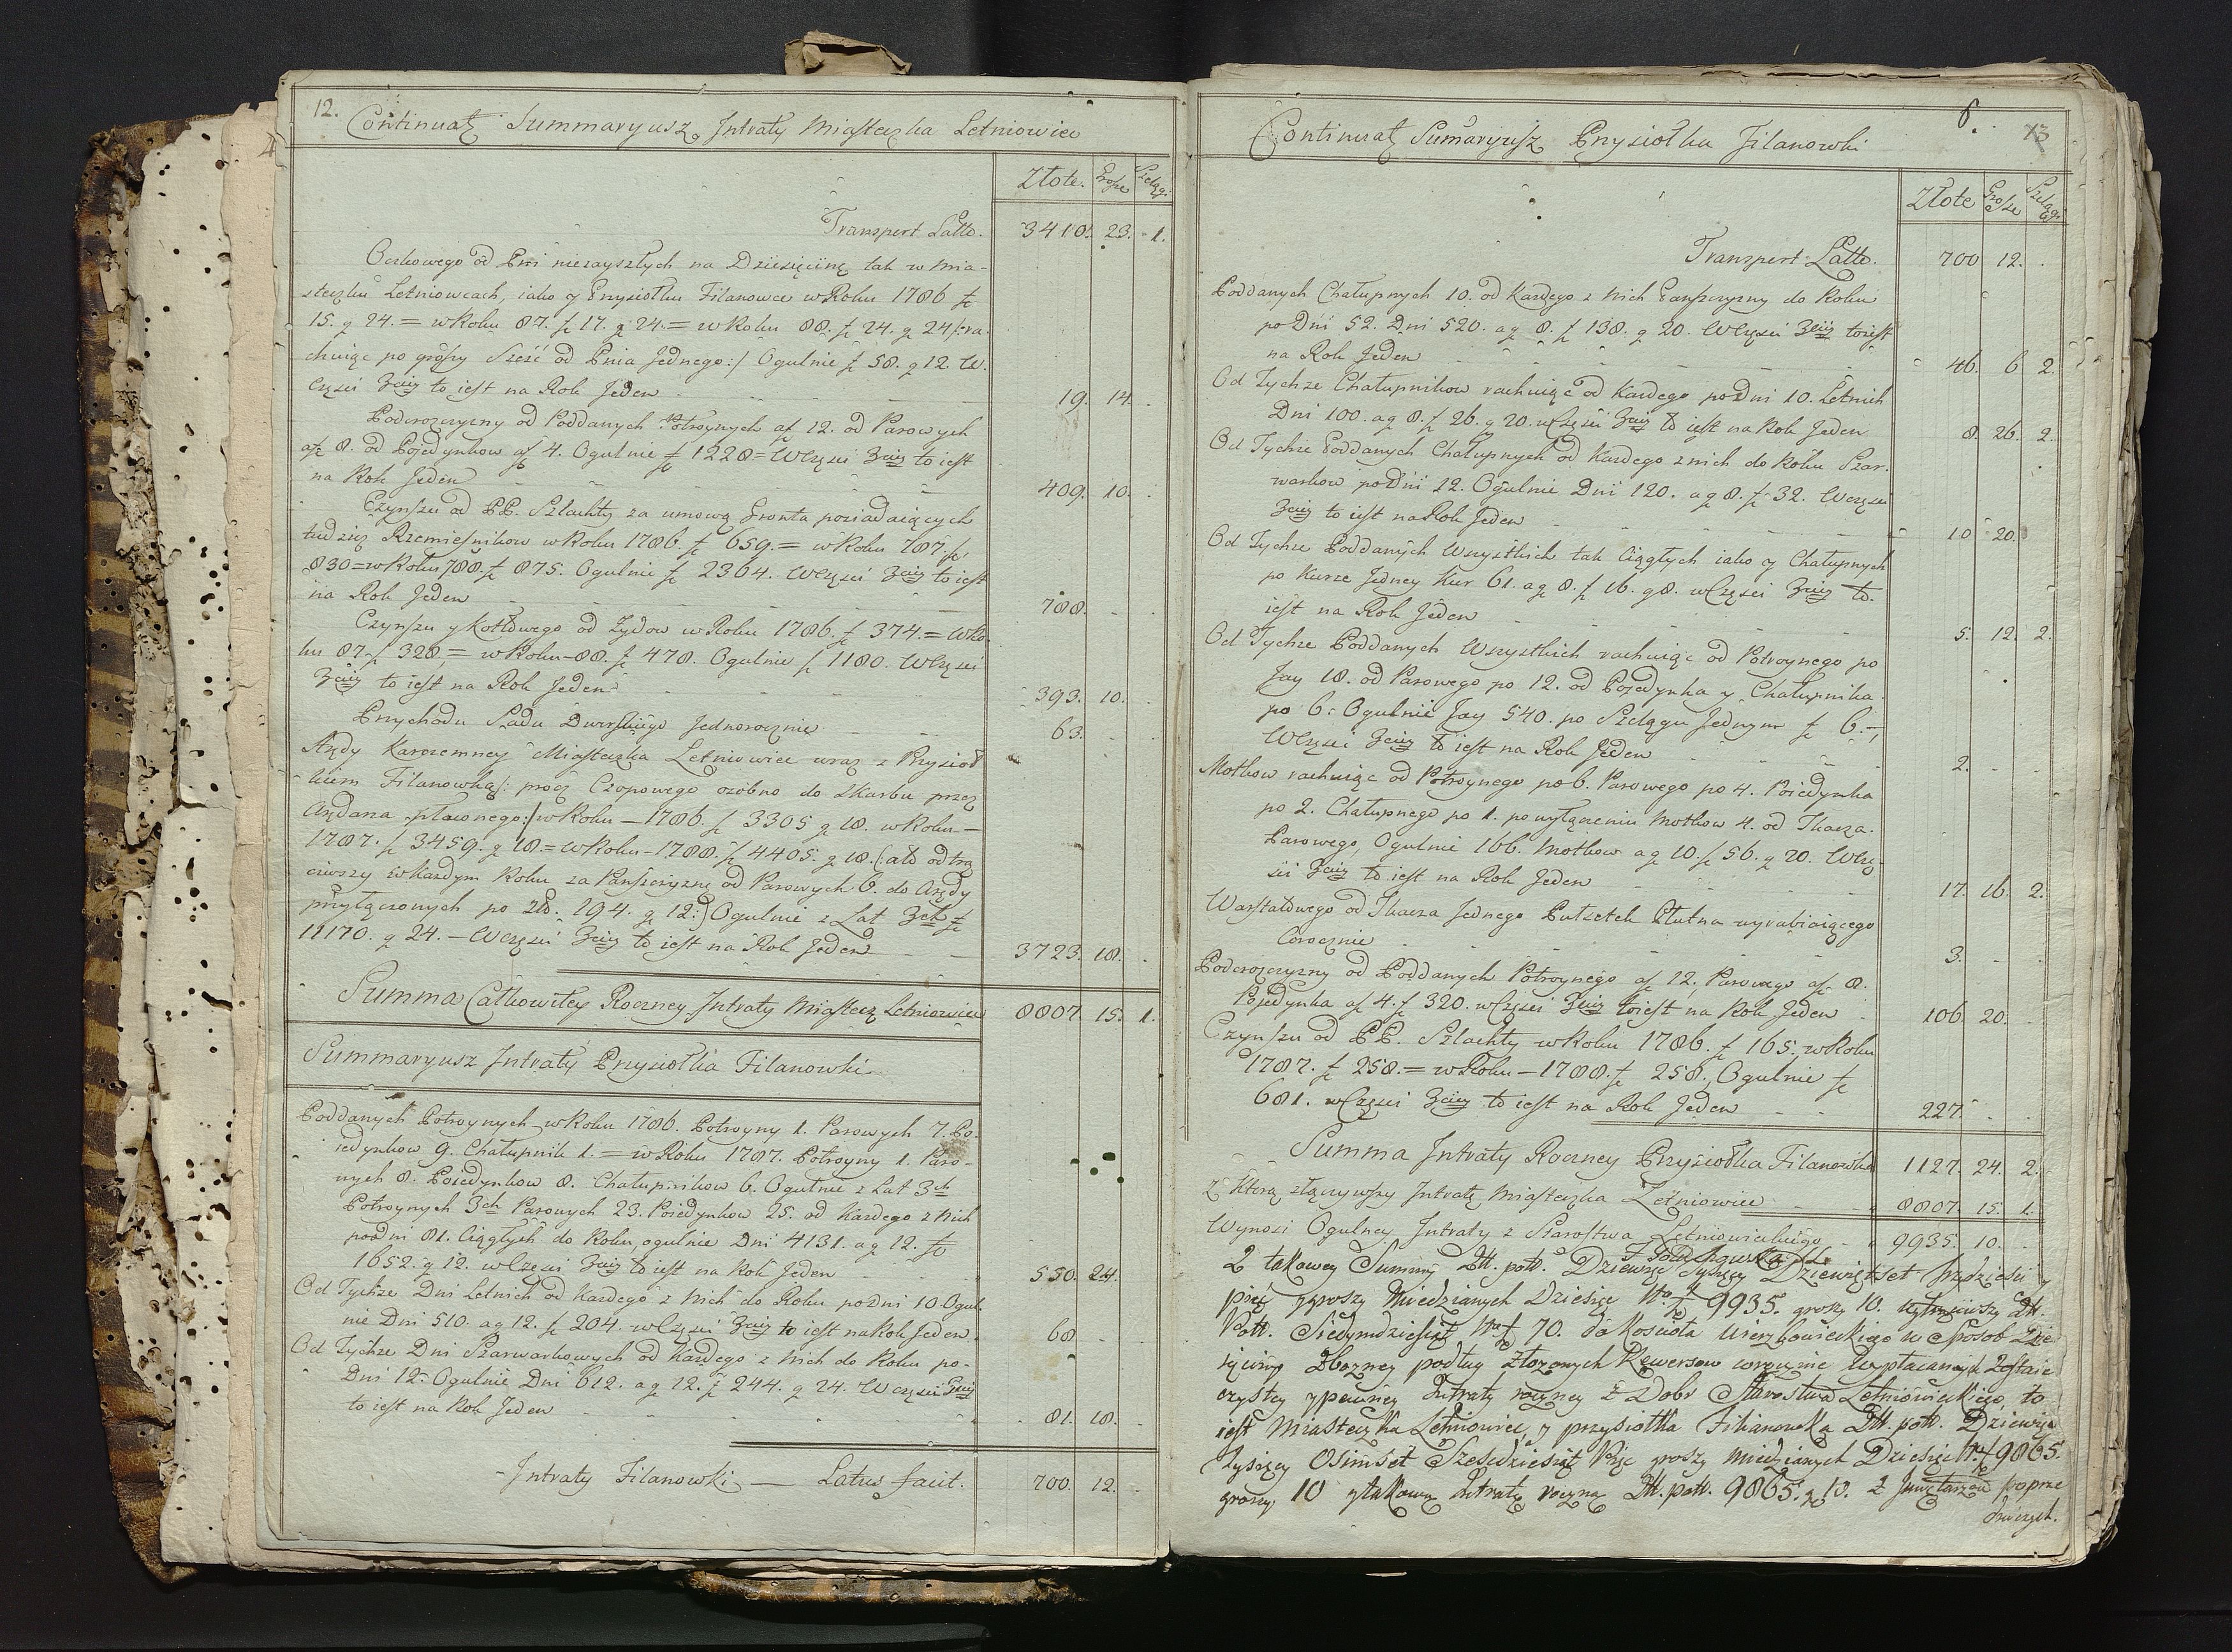 12. Continuat Summaryusz Intraty Miasteczka Letniowiec
Złote. Grosze Szelągi
Transport Latto. 3410. 23. 1.
Oczkowego od Pni niezayszłych na Dziesięcinę tak w Mia-
steczku Letniowcach, iako y Przysiołku Filanowce w Roku 1786 f
15. g 24. = w Roku 87. f 17. g 24. = w Roku 88. f 24. g 24 /:ra-
chuiąc po groszy Sześć od Pnia Jednego:/ Ogulnie f 58. g 12. W.
Części 3ciey to iest na Rok Jeden 19. 14.
Podorozczyzny od Poddanych Potroynych a f 12. od Parowych
a f 8. od Pojedynkow a f 4. Ogulnie f 1228 = W Części 3ciey to iest
na Rok Jeden 409. 10.
Czynszu od PP. Szlachty za umową Gronta posiadaiących
tudzież Rzemieśnikow w Roku 1786. f 659. = w Roku 787. f
830 = w Roku 788. f 875. Ogulnie f 2364. W Części 3ciey to iest
na Rok Jeden 788.
Czynszu y Kotłowego od Żydow w Roku 1786. f 374. = w Ro-
ku 87. f 328. = w Roku - 88. f 478. Ogulnie f 1180. W Części
3ciey to iest na Rok Jeden 393. 10.
Przychodu Sadu Dworskiego Jednorocznie 63.
Arędy Karczemney Miasteczka Letniowiec wraz z Przysioł-
kiem Filanowką /: procz Czopowego osobno do Skarbu przez
Arędarza płaconego:/ w Roku - 1786. f 3305 g 18. w Roku -
1787. f 3459. g 18. = w Roku - 1788. f 4405. g 18. (:ato odtrą
ciwszy w każdym Roku za Pańszczyznę od Parowych 6. do Arędy
przyłączonych po Zł. 194. g 12:) Ogulnie z Lat 3ch f
11170. g 24. - W Części 3ciey to iest na Rok Jeden 3723. 18.
Summa Całkowitey Roczney Intraty Miastecz Letniowiec 8807. 15. 1.
Summaryusz Intraty Przysiołka Filanowki
Poddanych Potroynych w Roku 1786. Potroyny 1. Parowych 7. Po-
iedynkow 9. Chałupnik 1. = w Roku 1787. Potroyny 1. Paro-
wych 8. Poiedynkow 8. Chałupnikow 6. Ogulnie z Lat 3ch
Potroynych 3ch Parowych 23. Poiedynkow 25. od każdego z Nich
po dni 81. Ciągłych do Roku, ogulnie Dni 4131. a g 12. f
1652. g 12. w Części 3ciey to iest na Rok Jeden 550. 24.
Od Tychże Dni Letnich od każdego z Nich do Roku po dni 10. Ogul-
nie Dni 510. a g 12. f 204. w Części 3ciey to iest na Rok Jeden 68
Od Tychże Dni Szarwarkowych od każdego z Nich do Roku po-
Dni 12. Ogulnie Dni 612. a g 12. f 244. g 24. W Części 3ciey
to iest na Rok Jeden 81. 18.
Intraty Filanowki — Latus facit. 700. 12.
8. 73
Continuat Sumaryusz Przysiołka Filanowki
Złote Grosze Szelągi
Transport Latto. 700 12.
Poddanych Chałupnych 10. od każdego z Nich Pańszczyzny do Roku
po Dni 52. Dni 520. a g 8. f 138. g 20. W Części 3ciey to iest
na Rok Jeden 46. 6 2.
Od Tychże Chałupnikow rachuiąc od każdego po Dni 10. Letnich
Dni 100. a g 8. f 26. g 20. w Części 3ciey to iest na Rok Jeden 8. 26. 2.
Od Tychże Poddanych Chałupnych od każdego z nich do Roku Szar-
warkow po Dni 12. Ogulnie Dni 120. a g 8. f 32. W Części
3ciey to iest na Rok Jeden 10 20.
Od Tychże Poddanych Wszystkich tak Ciągłych iako y Chałupnych
po Kurze Jedney Kur 61. a g 8. f 16. g 8. w Części 3ciey to
iest na Rok Jeden 5. 12. 2.
Od Tychże Poddanych Wszystkich rachuiąc od Potroynego po
Jay 18. od Parowego po 12. od Pojedynka y Chałupnika
po 6: Ogulnie Jay 540. po Szelągu Jednym f 6.-,
W Części 3ciey to iest na Rok Jeden 2.
Motkow rachuiąc od Potroynego po 6. Parowego po 4. Poiedynka
po 2. Chałupnego po 1. po wyłączeniu Motkow 4. od Tkacza
Parowego, Ogulnie 166. Motkow a g 10. f 56. g 20. W Czę-
ści 3ciey to iest na Rok Jeden 17. 16. 2.
Warsztatowego od Tkacza Jednego Pułsetek Płutna wyrabiaiącego
Corocznie 3.
Podorozczyzny od Poddanych Potroynego a f 12, Parowego a f 8.
Pojedynka a f 4. f 320. w Części 3ciey to iest na Rok Jeden 106. 20.
Czynszu od PP. Szlachty w Roku 1786. f 165., w Roku
1787. f 258. = w Roku - 1788. f 258., Ogulnie f
681. w Części 3ciey to iest na Rok Jeden 227.
Summa Intraty Roczney Przysiołka Filanowki 1127. 24. 2.
Z którą złączywszy Intratę Miasteczka Letniowiec 8807. 15. 1.
Wynosi Ogulney Intraty z Starostwa Letniowieckiego 9935. 10.
Z takowey Summy Zł. poll. Dziewięć Tysięcy Dziewięćset trzydzieści
pięć y groszy Miedzianych Dziesięć Nro f 9935. groszy 10. wytrąciwszy Zł.
Poll. Siedymdziesiąt Nro f 70. do Kościoła Wierzbowieckiego w Sposób Dzie-
sięciny Zbozney podług złożonych Rewersow corocznie wypłacanych Zostaie
czystey y pewney Intraty roczney z Dobr Starostwa Letniowieckiego, to
iest Miasteczka Letniowiec, y przysiołka Filianowka Zł. poll. Dziewięć
Tysięcy Osimset Sześćdziesiąt Pięć groszy miedzianych Dziesięć Nro f 9865.
groszy 10 y takowa Intrata roczna Zł. poll. 9865. g 10. z Inwentarzow poprze
dniczych.